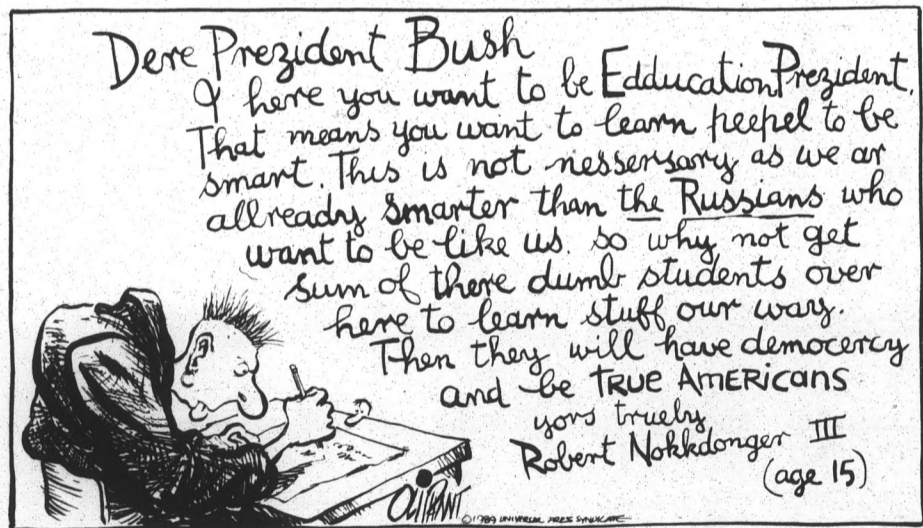 Dere Prezident Bush
I here you want to be Edducation Prezident.
That means you want to learn peepel to be
smart. This is not nessersary as we ar
allready smarter than the Russians who
want to be like us. so why not get
sum of there dumb students over
here to learn stuff our way.
Then they will have democercy
and be TRUE AMERICANS
yors truely
Robert Nokkdonger III
(age 15)
OLIPHANT
©1989 UNIVERSAL PRESS SYNDICATE